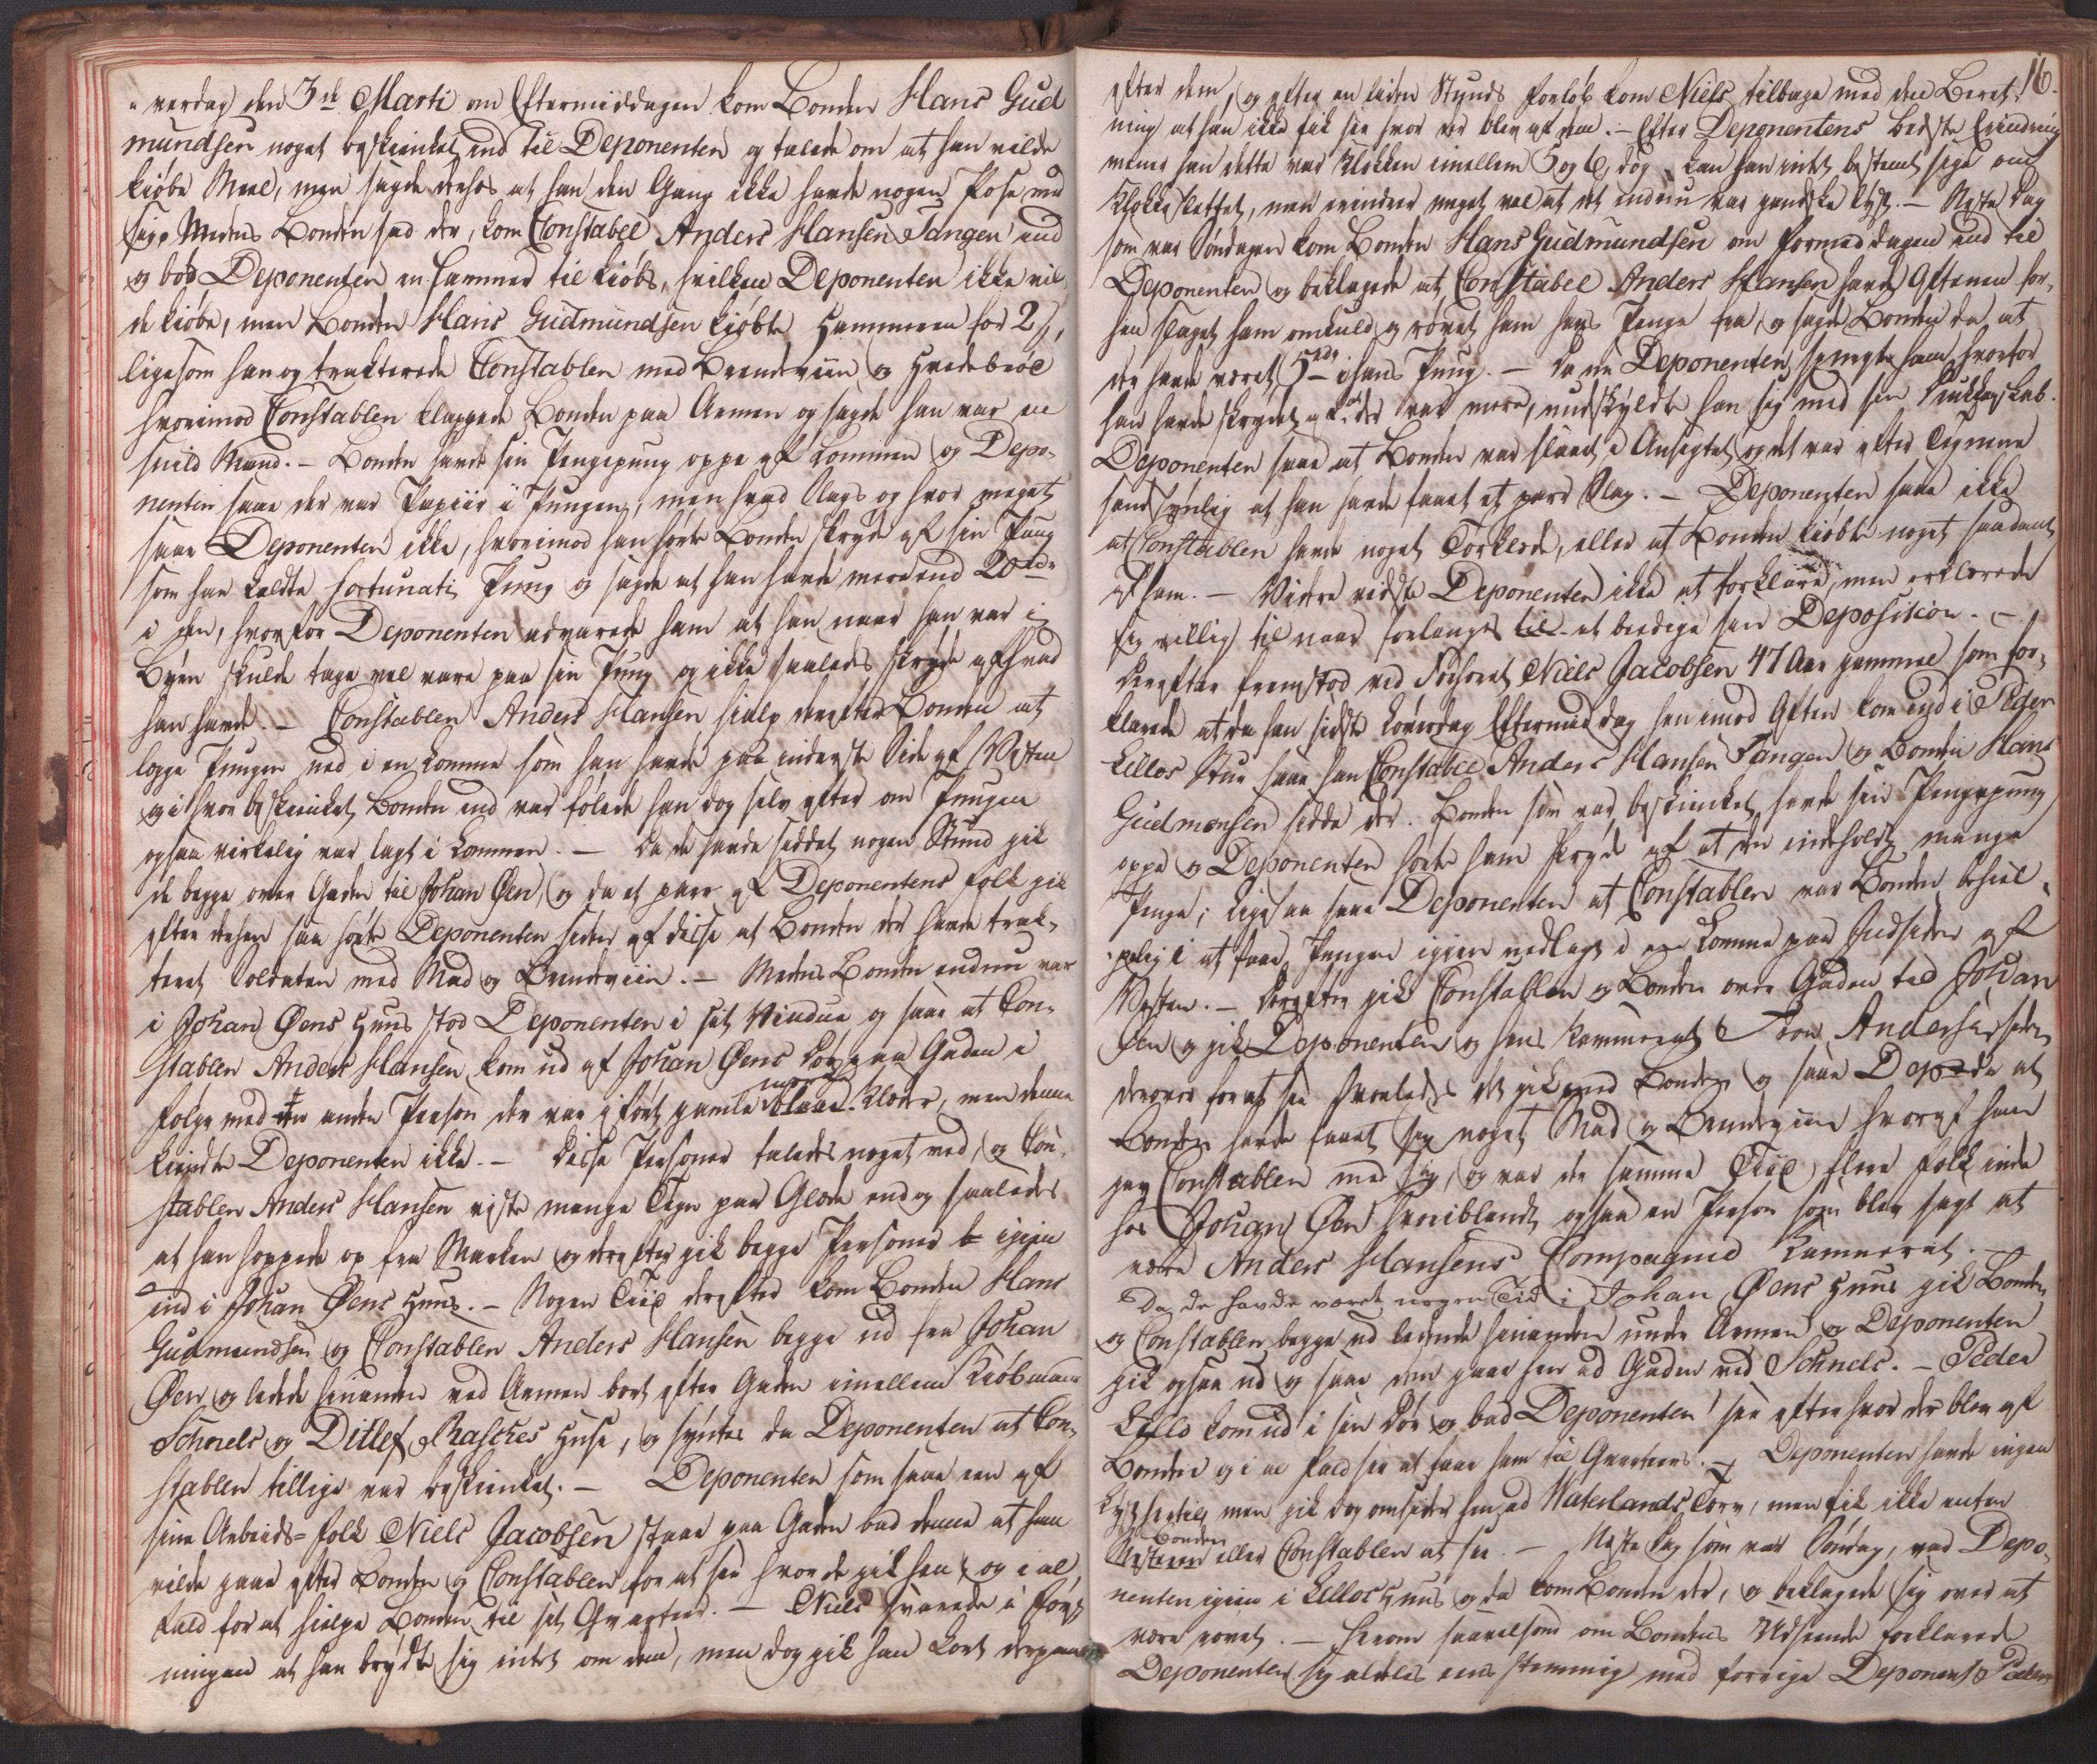 verdag den 3de Marti om Eftermiddagen kom Bonden Hans Gud
mundsen noget beskienket ind til Deponenten og talede om at han vilde
kiøbe Meel, men sagde derhos at han den Gang ikke havde nogen Pose med
sig. Medens Bonden sad der, kom Constabel Anders Hansen Tangen ind
og bød Deponenten en Hammer til kiøbs, hvilken Deponenten ikke vil
de kiøbe, men Bonden Hans Gudmundsen kiøbte Hammeren for 2
ligesom han og trakterede Constablen med Brendeviin og Hvedebrød
hvorimod Constablen klappede Bonden paa Armen og sagde han var en
snild Mand. – Bonden havde sin Pengepung oppe af Lommen og Depo-
nenten saae der var Papiir i Pungen, men hvad Slags og hvor meget
saae Deponenten ikke, hvorimod han hørte Bonden skryde af sin Pung
som han kaldte Fortunati Pung og sagde at han havde mere end 20 rdr
i den, hvorfor Deponenten advarede ham at han naar han var i
Byen skulde tage vel vare paa sin Pung og ikke saaledes skryde af hvad
han havde. – Constablen Anders Hansen hialp derefter Bonden at
legge Pungen ned i en Lomme som han havde paa inderste Side af Vesten
og i hvor beskienket Bonden end var følede han dog selv efter om Pungen
ogsaa virkelig var lagt i Lommen. – Da de havde siddet nogen Stund gik
de begge over Gaden til Johan Øen, og da et parr af Deponentens Folk gik
efter dehen saa hørte Deponenten siden af disse at Bonden der havde trak-
teret Soldaten med Mad og Brendeviin. – Medens Bonden endnu var
i Johan Øens Huus stod Deponenten i sit Vindue og saae at Con-
stablen Anders Hansen kom ud af Johan Øens Dør paa Gaden i
følge med en anden Person der var iført gamle blaae Klæder, men denne
kiendte Deponenten ikke. – Disse Personer taledes noget ved, og Con-
stablen Anders Hansen viste mange Tegn paa Glæde endog saaledes
at han hoppede op fra Marken og derefter gik begge Personer igien
ind i Johan Øens Huus. – Nogen Tiid derefter kom Bonden Hans
Gudmundsen og Constablen Anders Hansen begge ud fra Johan
Øen og ledede hinanden ved Armen bort efter Gaden imellem Kiøbmand
Schnels og Ditlef Rasches Huse, og syntes da Deponenten at Con-
stablen tillige var beskienket. – Deponenten som saae een af
sine Arbeids-Folk Niels Jacobsen staae paa Gaden bad denne at han
vilde gaae efter Bonden og Constablen for at see hvor de gik hen og i al
Fald for at hielpe Bonden til sit Qvarteer. – Niels svarede i Først
ningen at han brydte sig intet om dem, men dog gik han kort derpaa
16.
efter dem, og efter en liden Stunds Forløb kom Niels tilbage med den Beret-
ning at han ikke fik see hvor der blev af dem. – Efter Deponentens bedste Erindring
mener han dette var Klokken imellem 5 og 6, dog kan han intet bestemt sige om
Klokkeslettet, men erindrer meget vel at det endnu var gandske lyst. – Neste Dag
som var Søndagen kom Bonden Hans Gudmundsen om Formiddagen ind til
Deponenten og beklagede at Constabel Anders Hansen havde Aftenen for-
hen slaget ham omkuld og røvet ham hans Penge fra, og sagde Bonden da at
der havde været 5 rdr i hans Pung. – Da nu Deponenten spurgte ham hvorfor
han havde skrydet af at der var mere, undskyldte han sig med sin Drukkenskab.
Deponenten saae at Bonden var slaaet i Ansigtet og det var efter Tegnene
sandsynlig at han havde faaet et pard Slag. – Deponenten saae ikke
at Constablen havde noget Tørklæde, eller at Bonden kiøbte noget saadant
af ham. – Videre vidste Deponenten ikke at forklare, men erklærede
sig villig til naar forlanges at beedige sin Deposition. –
Derefter fremstod ved Forhøret Niels Jacobsen 47 Aar gammel som for-
klarede at da han sidste Løverdag Eftermiddag hen imod Aften kom ind i Peder
Lillos Stue saae han Constabel Anders Hansen Tangen og Bonden Hans
Gudmonsen sidde der. Bonden som var beskienket havde sin Pengepung
oppe og Deponenten hørte ham skryde af at den indeholdt mange
Penge; ligesaa saae Deponenten at Constablen var Bonden behiel-
pelig i at faae Pungen igien nedlagt i en Lomme paa Indsiden af
Vesten. – Derefter gik Constablen og Bonden over Gaden til Johan
Øen og gik Deponenten og hans Kammerat Tron Andersen siden
derover for at see hvorledes det gik med Bonden og saae Dep. da at
Bonden havde faaet sig noget Mad og Brendeviin hvoraf han
gav Constablen med sig, og var der samme Tiid flere Folk inde
hos Johan Øen hvoriblandt ogsaa en Person som blev sagt at
være Anders Hansens Compagnie Kammerat. –
Da de havde været nogen Tid i Johan Øens Huus gik Bonden
og Constablen begge ud ledende hinanden under Armen og Deponenten
gik ogsaa ud og saae dem gaae hen ad Gaden ved Schnels. – Peder
Lillo kom ud i sin Dør og bad Deponenten see efter hvor der blev af
Bonden og i al Fald see at faae ham til Qvarteers. – Deponenten havde ingen
Lyst hertil, men gik dog omsider hen ad Waterlands Torv, men fik ikke enten
Bonden
eller Constablen at see. – Neste Dag som var Søndag, var Depo-
nenten igien i Lillos Huus og da kom Bonden der, og beklagede sig over at
være røvet. – Herom saavelsom om Bondens Udseende forklarede
Deponenten sig aldeles eenstemmig med forrige Deponent Peder